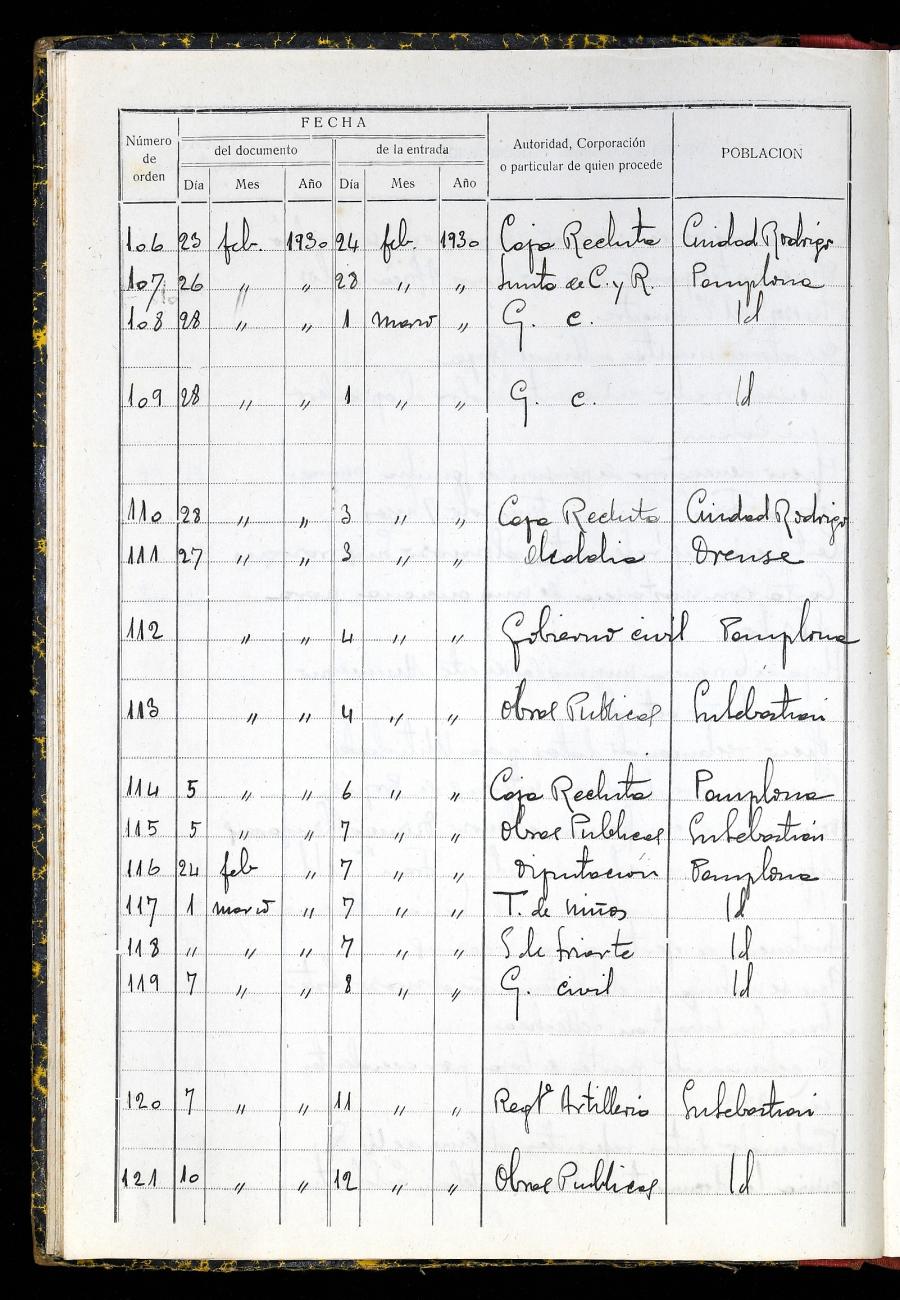 Número de orden
FECHA
del documento
de la entrada
Día Mes Año Día Mes Año
Autoridad, Corporación
o particular de quien procede
POBLACION
106 23 feb. 1930 24 feb. 1930 Caja Recluta Ciudad Rodrigo
107 26 " " 28 " " Junta de C. y R. Pamplona
108 28 " " 1 marzo " G. c. Id
109 28 " " 1 " " G. c. Id
110 28 " " 3 " " Caja Recluta Ciudad Rodrigo
111 27 " " 3 " " Alcaldia Orense
112 " " 4 " " Gobierno civil Pamplona
113 " " 4 " " Obras Publicas Sn Sebastián
114 5 " " 6 " " Caja Recluta Pamplona
115 5 " " 7 " " Obras Publicas Sn Sebastián
116 24 feb " 7 " " Diputación Pamplona
117 1 marzo " 7 " " T. de niños Id
118 " " " 7 " " S de Iriarte Id
119 7 " " 8 " " G. civil Id
120 7 " " 11 " " Regto Artilleria Sn Sebastián
121 10 " " 12 " " Obras Publicas Id